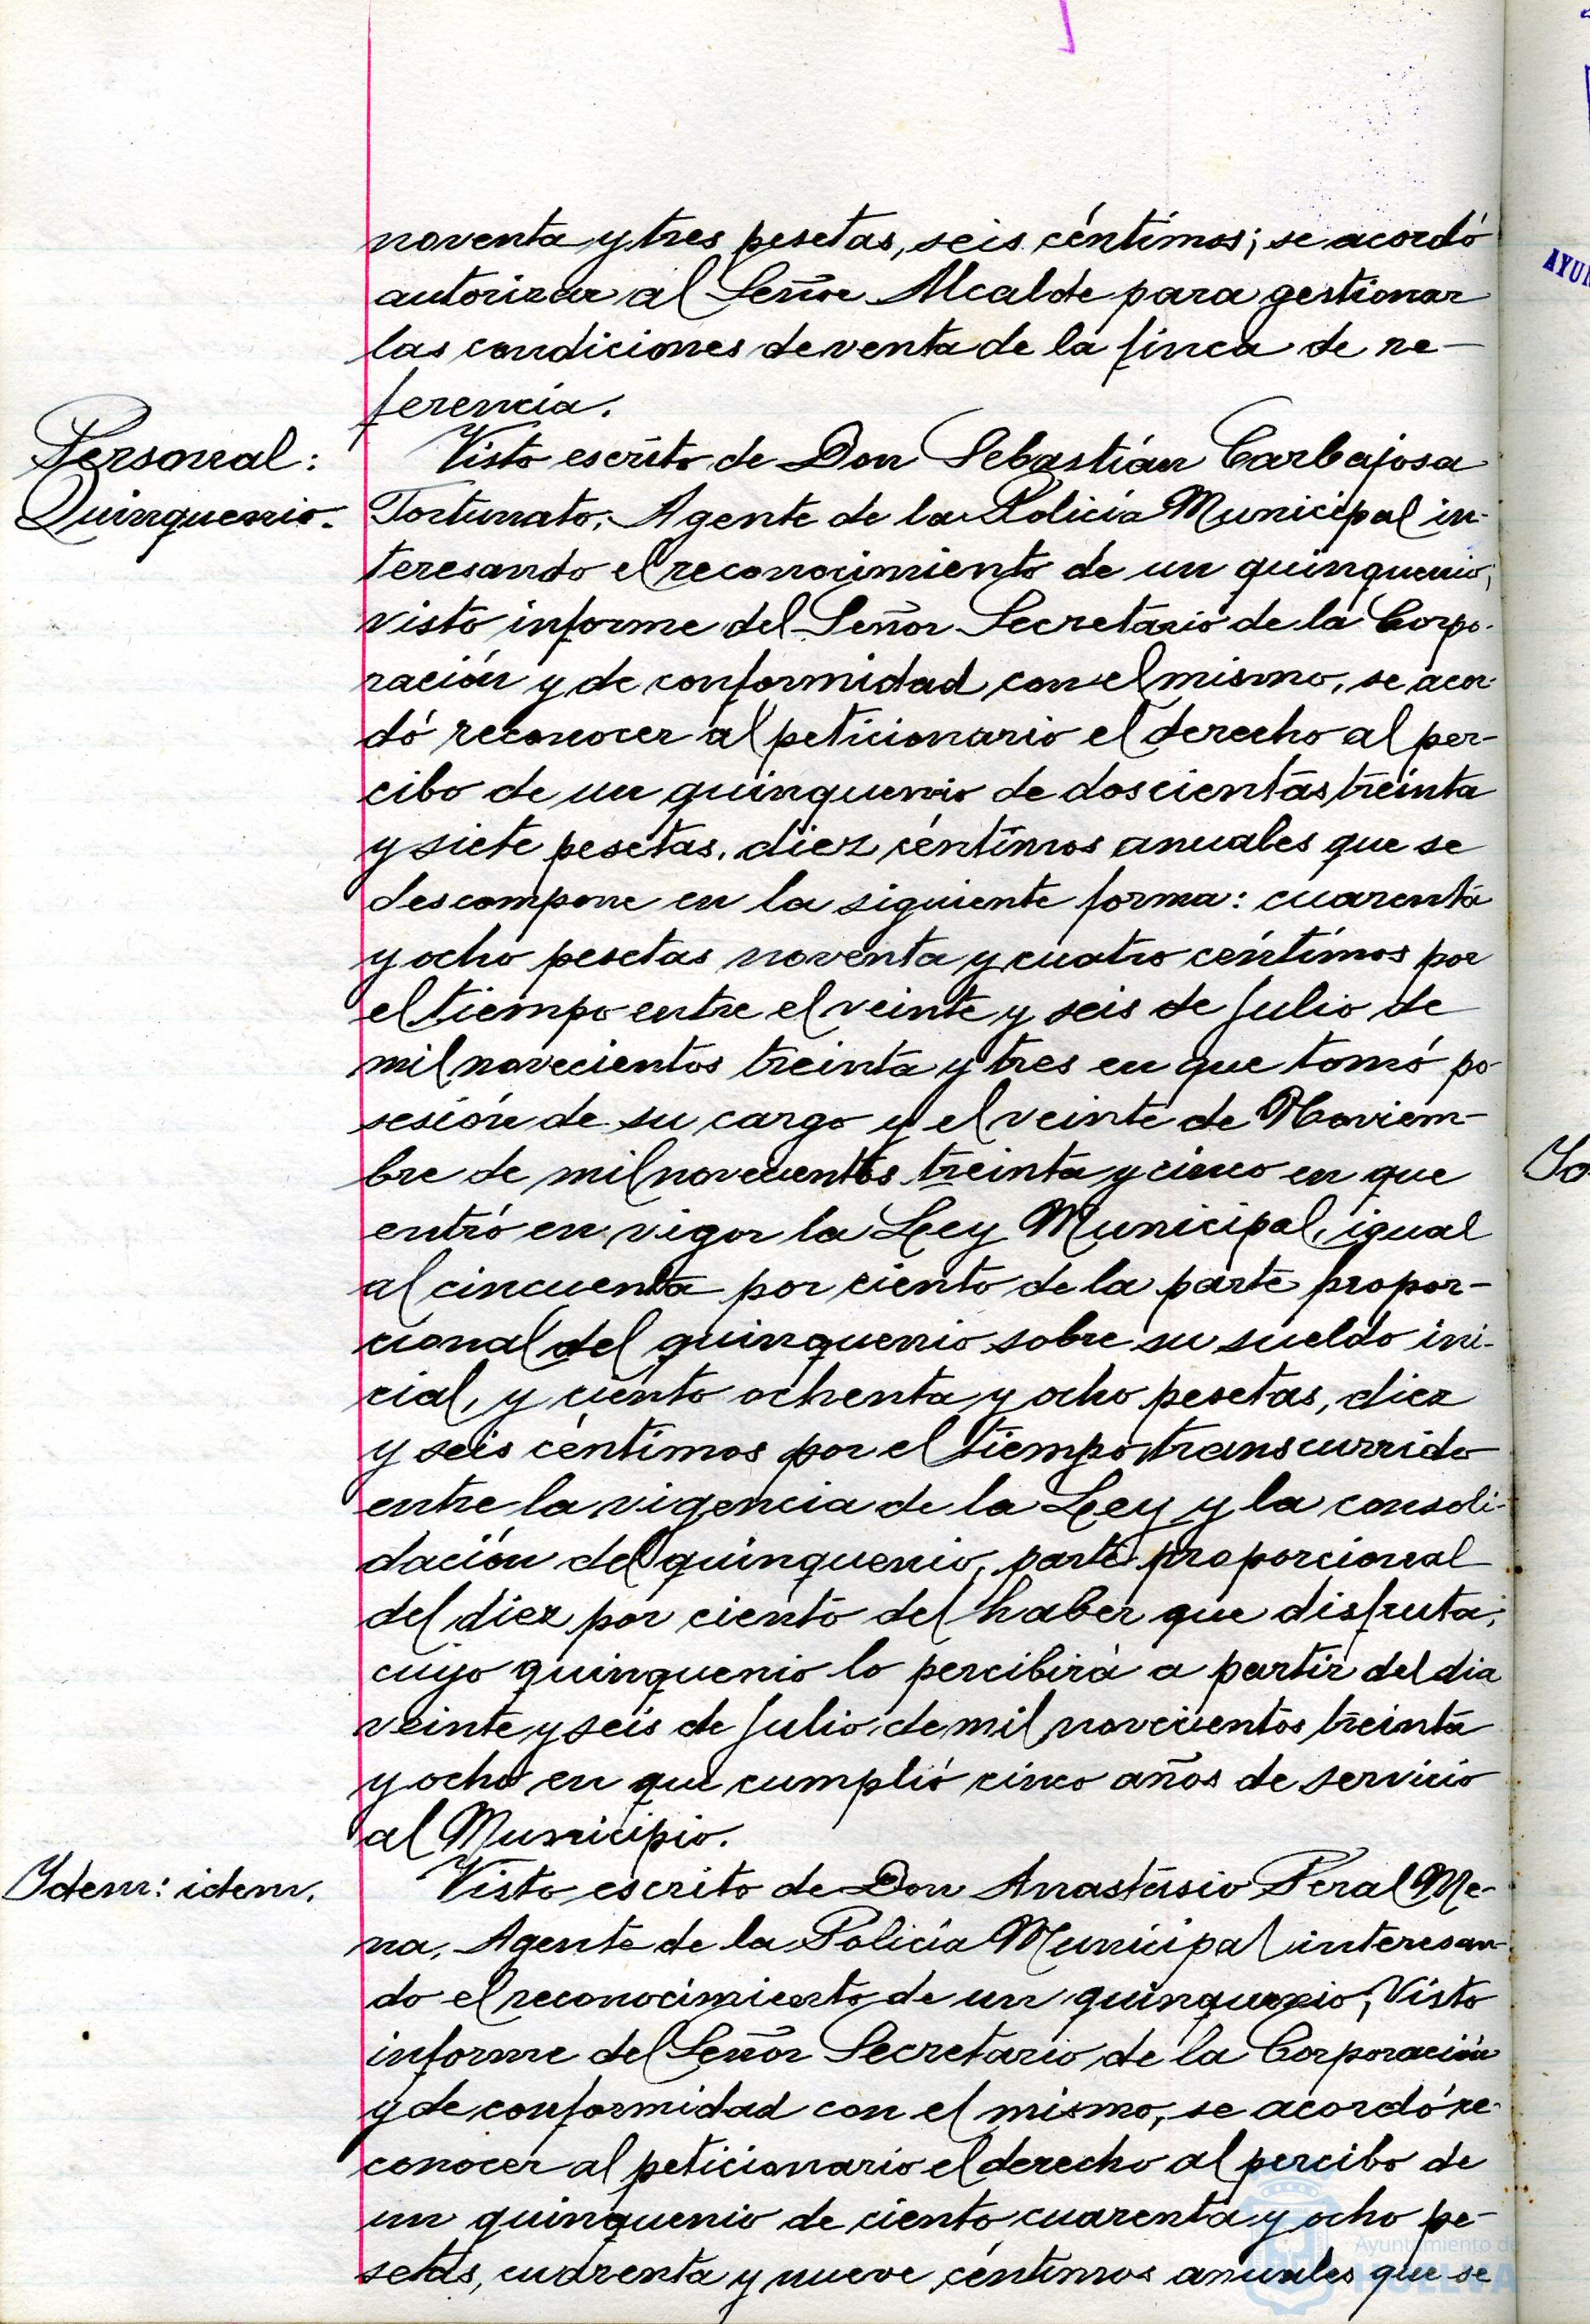 noventa y tres pesetas, seis céntimos; se acordó
autorizar al Señor Alcalde para gestionar
las condiciones de venta de la finca de re-
ferencia.
Personal:
Quinquenio.
Visto escrito de Don Sebastián Carbajosa
Fortunato, Agente de la Policía Municipal in-
teresando el reconocimiento de un quinquenio;
visto informe del Señor Secretario de la Corpo-
ración y de conformidad con el mismo, se acor-
dó reconocer al peticionario el derecho al per-
cibo de un quinquenio de doscientas treinta
y siete pesetas, diez céntimos anuales que se
descompone en la siguiente forma: cuarenta
y ocho pesetas noventa y cuatro céntimos por
el tiempo entre el veinte y seis de Julio de
mil novecientos treinta y tres en que tomó po-
sesión de su cargo y el veinte de Noviem-
bre de mil novecientos treinta y cinco en que
entró en vigor la Ley Municipal, igual
al cincuenta por ciento de la parte propor-
cional del quinquenio sobre su sueldo ini-
cial, y ciento ochenta y ocho pesetas, diez
y seis céntimos por el tiempo transcurrido
entre la vigencia de la Ley y la consoli-
dación del quinquenio, parte proporcional
del diez por ciento del haber que disfruta;
cuyo quinquenio lo percibirá a partir del dia
veinte y seis de Julio de mil novecientos treinta
y ocho en que cumplió cinco años de servicio
al Municipio.
Idem: idem.
Visto escrito de Don Anastasio Peral Me-
na, Agente de la Policía Municipal interesan-
do el reconocimiento de un quinquenio; Visto
informe del Señor Secretario de la Corporación
y de conformidad con el mismo, se acordó re-
conocer al peticionario el derecho al percibo de
un quinquenio de ciento cuarenta y ocho pe-
setas, cuarenta y nueve céntimos anuales que se
Ayuntamiento de
HUELVA